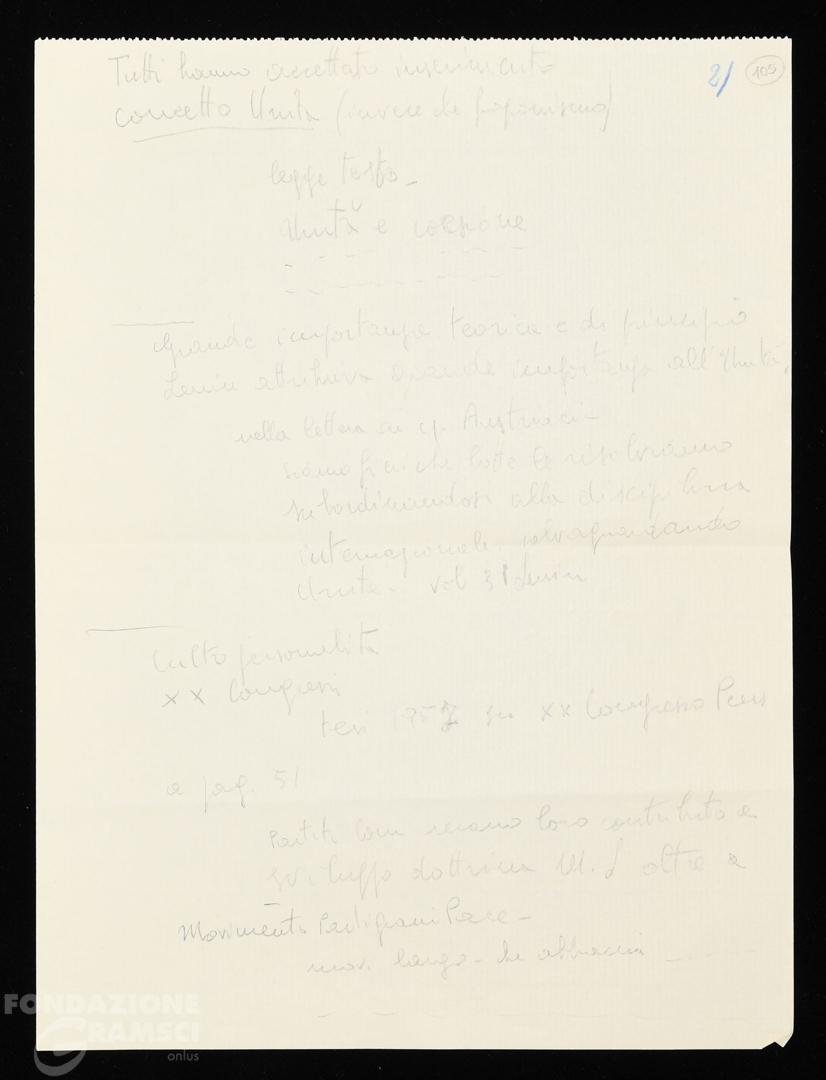 Tutti hanno accettato inserimento
2/ 105
concetto Unità (invece de
legge testo -
Unità e coesione
Grande importanza teorica e di principio
Lenin attribuiva grande importanza all'Unità,
nella lettera su Austriaci -
lotte le risolviamo
subordinandosi alla disciplina
internazionale salvaguardando
Unità - vol 31 Lenin
Culto personalità
XX Congressi
tesi 1957 su XX Congresso Pcus
a pag. 51
Partiti Com recano loro contributo a
sviluppo dottrina M.L oltre a
Movimento Partigiani Pace -
mov. largo - che abbraccia
FONDAZIONE
GRAMSCI
onlus